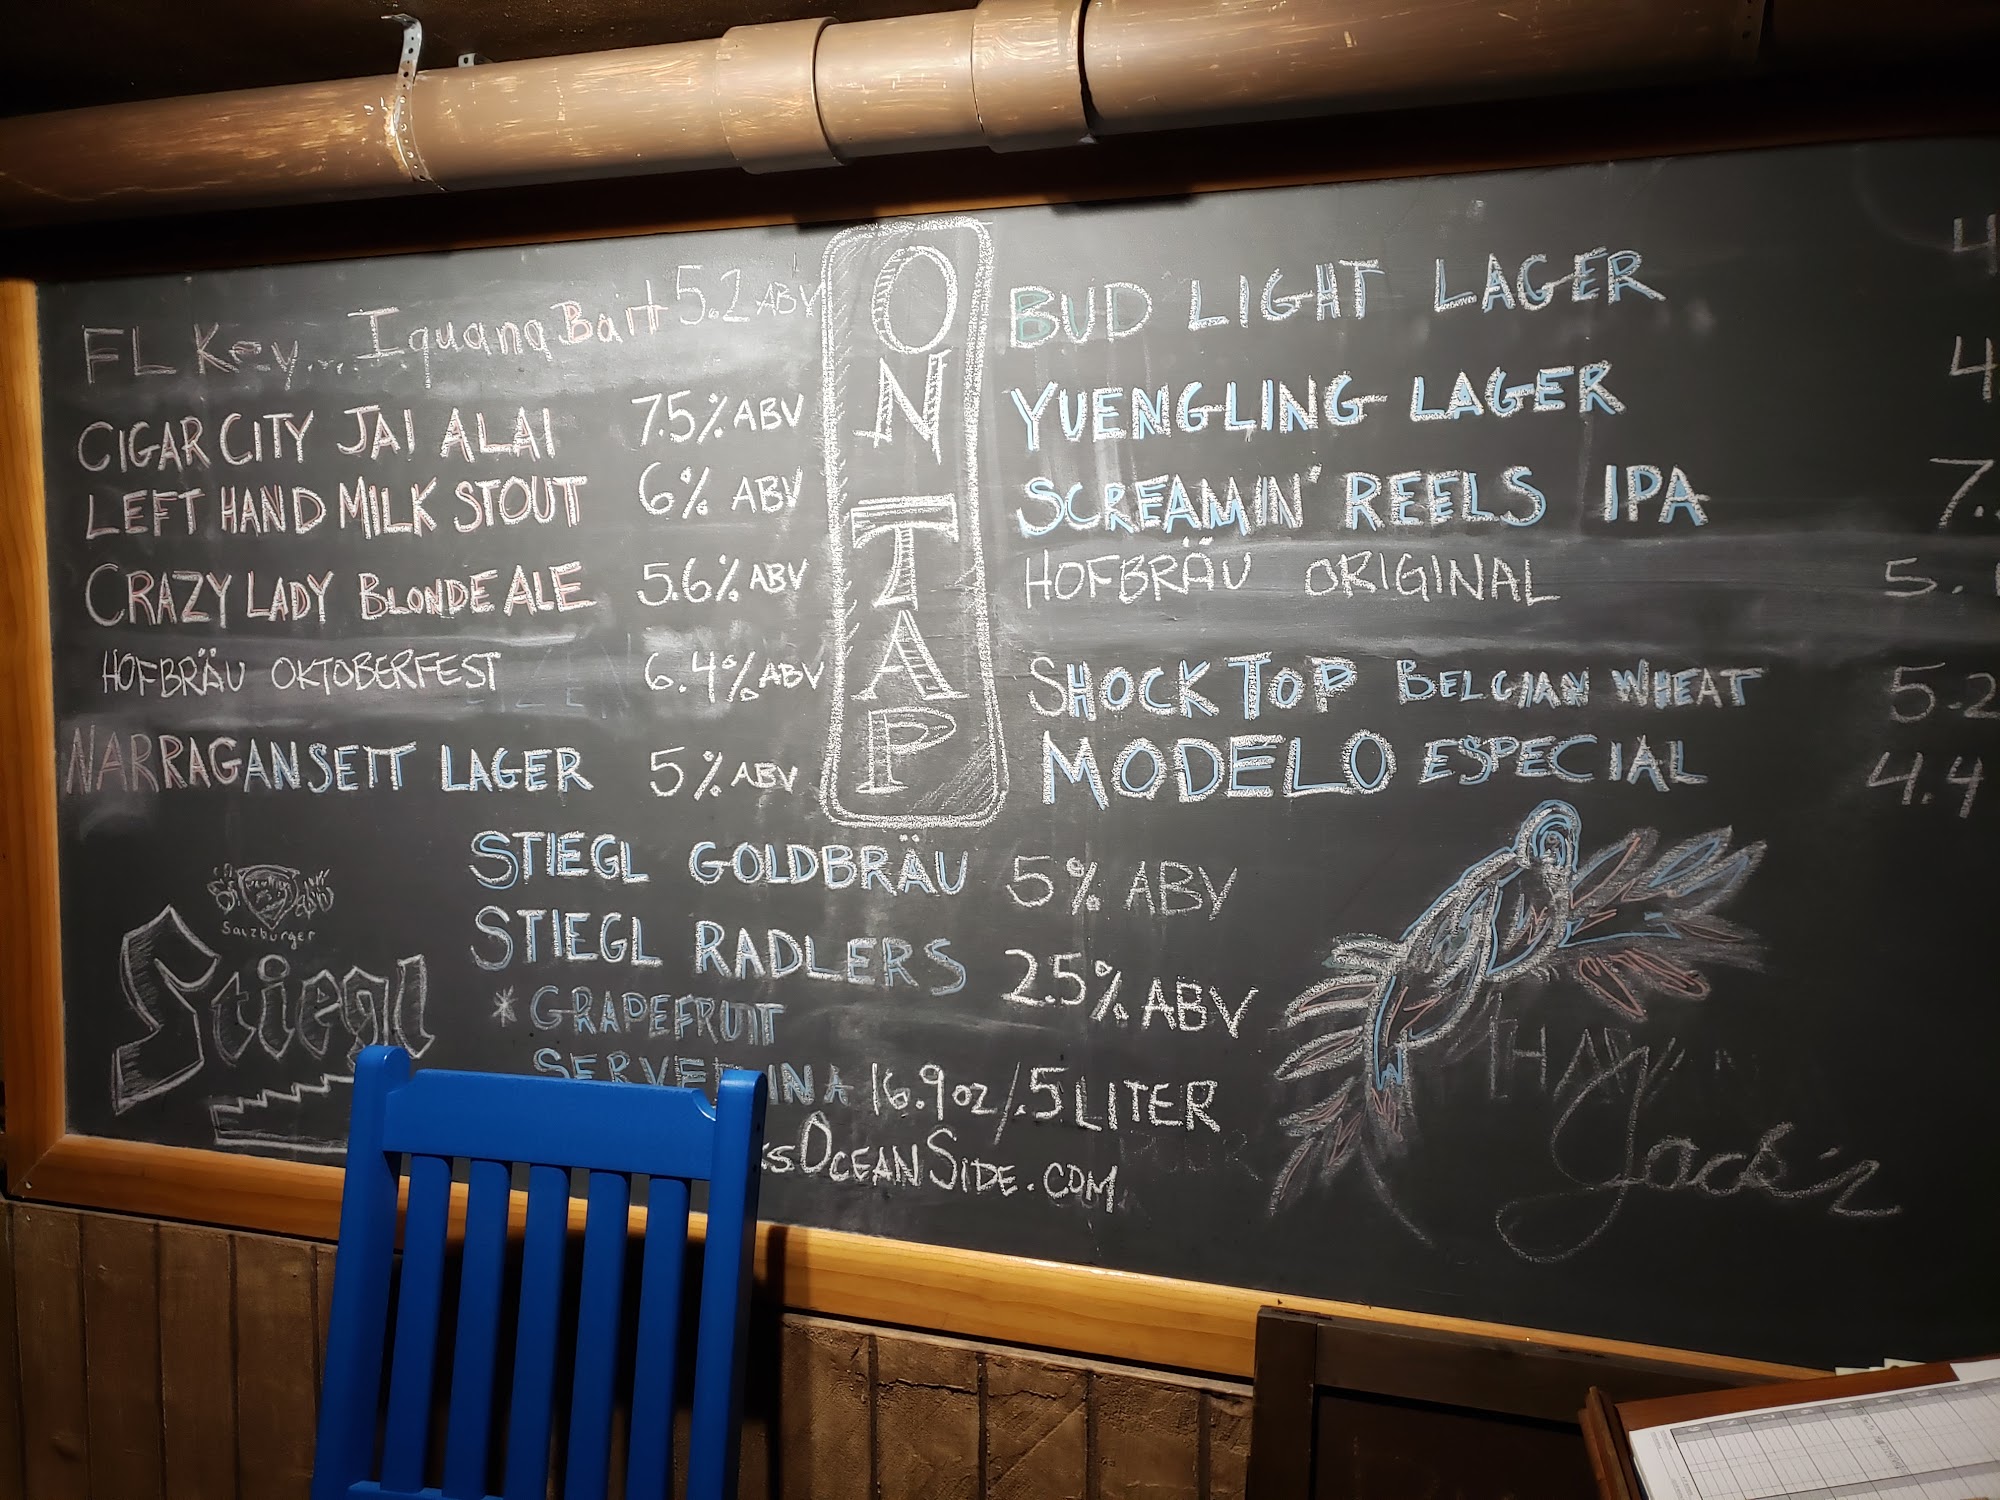 FL Key... Iguana Bait 5.2 ABV
CIGAR CITY JAI ALAI 7.5% ABV
LEFT HAND MILK STOUT 6% ABV
CRAZY LADY BLONDE ALE 5.6% ABV
HOFBRÄU OKTOBERFEST 6.4% ABV
NARRAGANSETT LAGER 5% ABV
ON TAP
BUD LIGHT LAGER 4
YUENGLING LAGER 4
SCREAMIN' REELS IPA 7.
HOFBRÄU ORIGINAL 5.
SHOCK TOP BELGIAN WHEAT 5.2
MODELO ESPECIAL 4.4
STIEGL GOLDBRÄU 5% ABV
STIEGL RADLERS 2.5% ABV
* GRAPEFRUIT
SERVED IN A 16.9oz/.5 LITER
OCEANSIDE.COM
Salzburger
Stiegl
Jack's